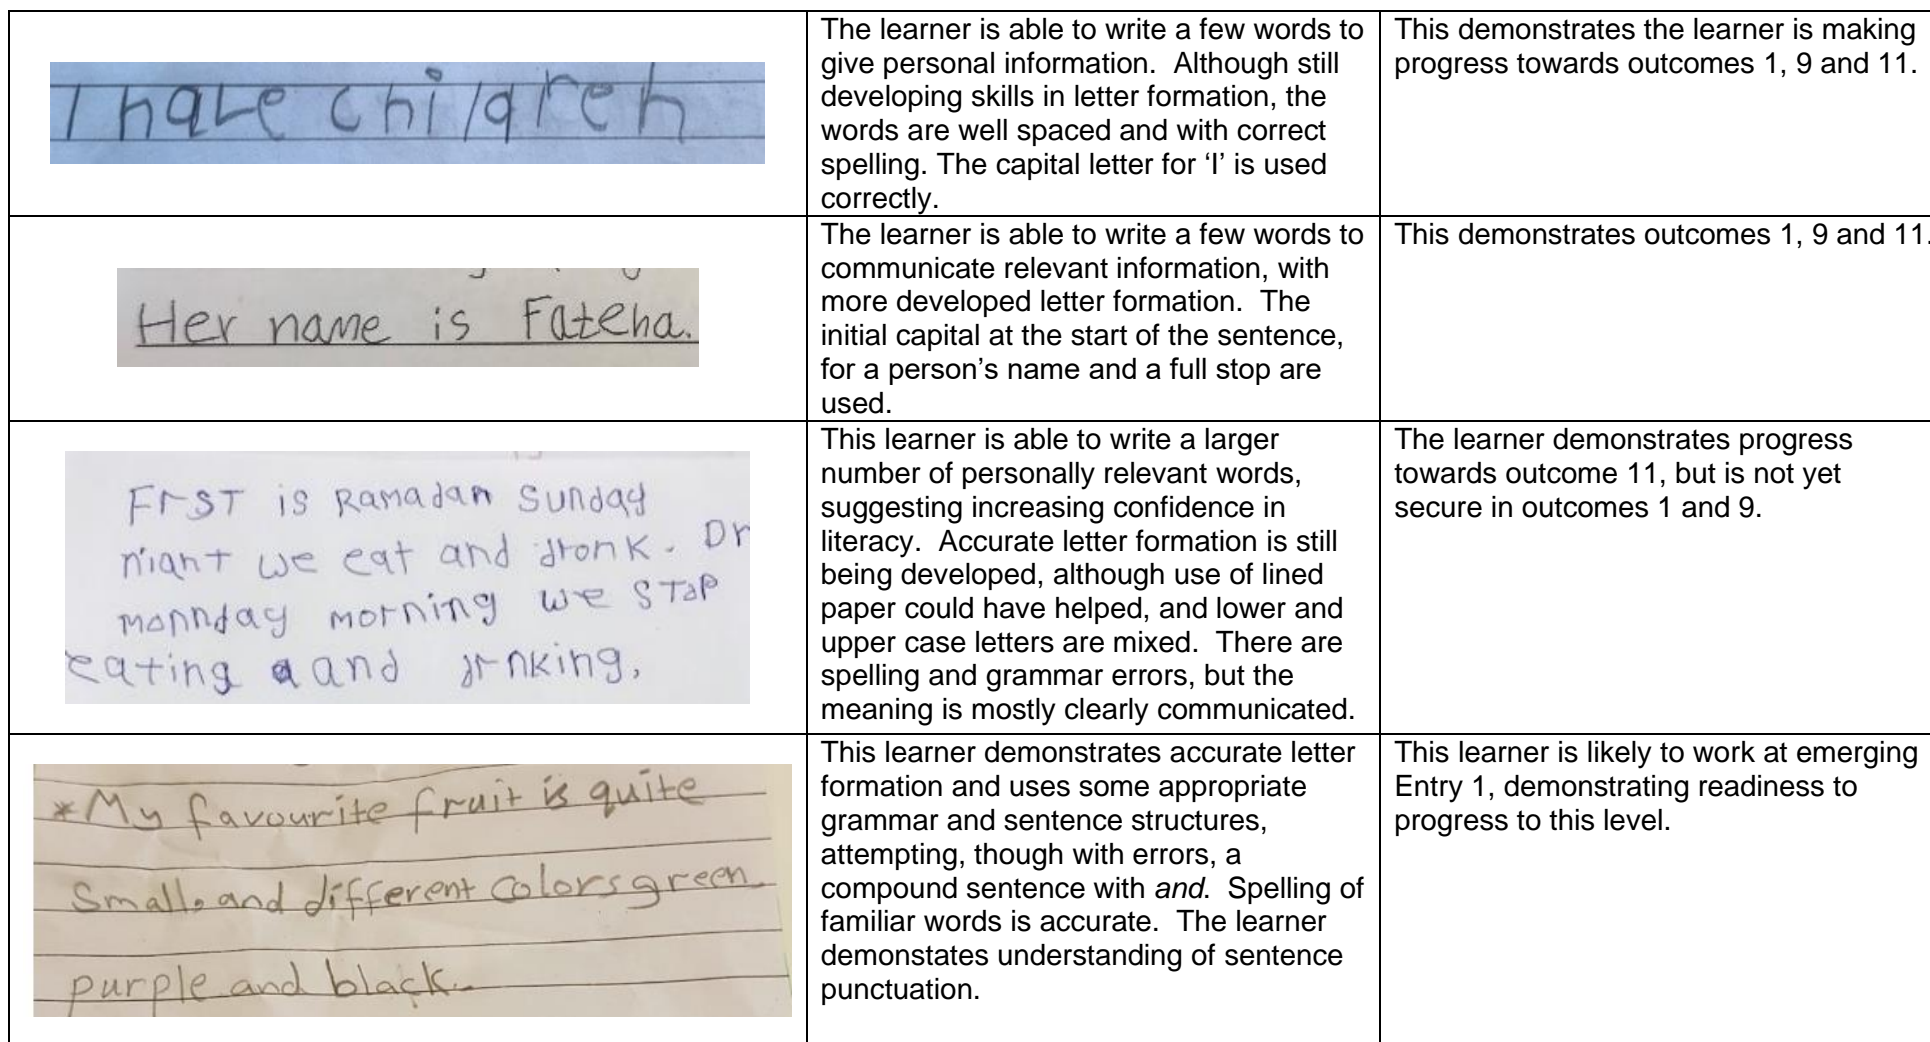 I have children
The learner is able to write a few words to
give personal information.  Although still
developing skills in letter formation, the
words are well spaced and with correct
spelling. The capital letter for ‘I’ is used
correctly.
This demonstrates the learner is making
progress towards outcomes 1, 9 and 11.
Her name is Fateha.
The learner is able to write a few words to
communicate relevant information, with
more developed letter formation.  The
initial capital at the start of the sentence,
for a person’s name and a full stop are
used.
This demonstrates outcomes 1, 9 and 11.
FrST is Ramadan Sunday
niant we eat and dronk. Dr
monnday morning we STop
eating a and drnking,
This learner is able to write a larger
number of personally relevant words,
suggesting increasing confidence in
literacy.  Accurate letter formation is still
being developed, although use of lined
paper could have helped, and lower and
upper case letters are mixed.  There are
spelling and grammar errors, but the
meaning is mostly clearly communicated.
The learner demonstrates progress
towards outcome 11, but is not yet
secure in outcomes 1 and 9.
*My favourite fruit is quite
Small, and different colors green
purple and black.
This learner demonstrates accurate letter
formation and uses some appropriate
grammar and sentence structures,
attempting, though with errors, a
compound sentence with and.  Spelling of
familiar words is accurate.  The learner
demonstates understanding of sentence
punctuation.
This learner is likely to work at emerging
Entry 1, demonstrating readiness to
progress to this level.